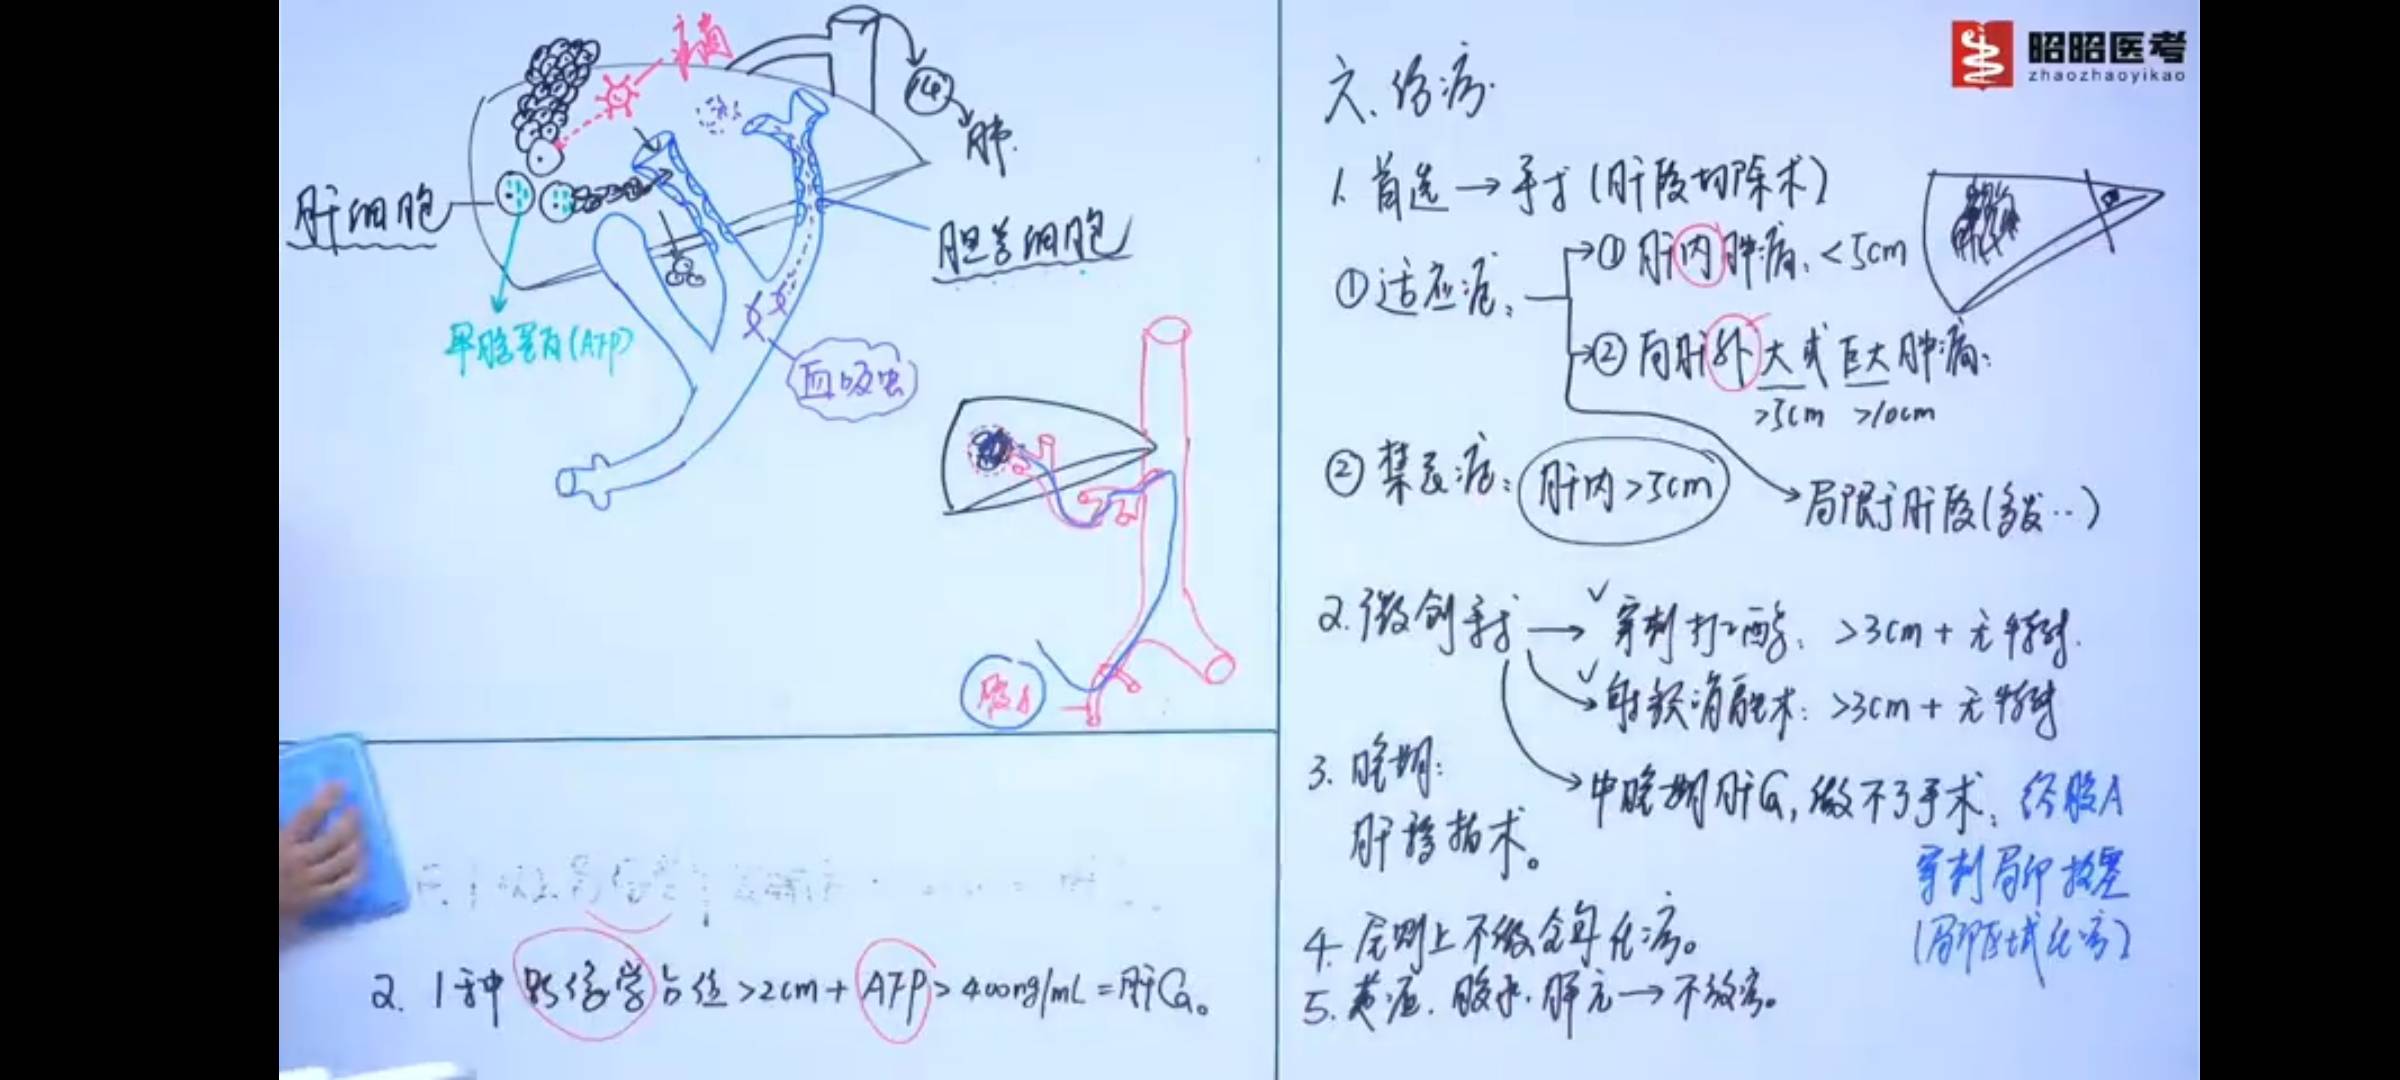 昭昭医考
zhaozhaoyikao
病菌
心
肺.
肝细胞
胆管细胞
甲胎蛋白(AFP)
血吸虫
股A
2. 1种影像学占位>2cm+AFP>400ng/mL=肝Ca。
六、治疗.
1. 首选→手术(肝段切除术)
①适应症:
→①肝内肿瘤:<5cm
→②向肝外大或巨大肿瘤:
>5cm >10cm
局限于肝段(多发…)
②禁忌症:肝内>5cm
2.微创手术→穿刺打乙醇:>3cm+无转移.
射频消融术:>3cm+无转移
中晚期肝Ca,做不了手术:经股A
穿刺局部栓塞
(局部区域化疗)
3. 晚期:
肝移植术。
4. 原则上不做全身化疗。
5. 黄疸.腹水.脾亢→不放疗。